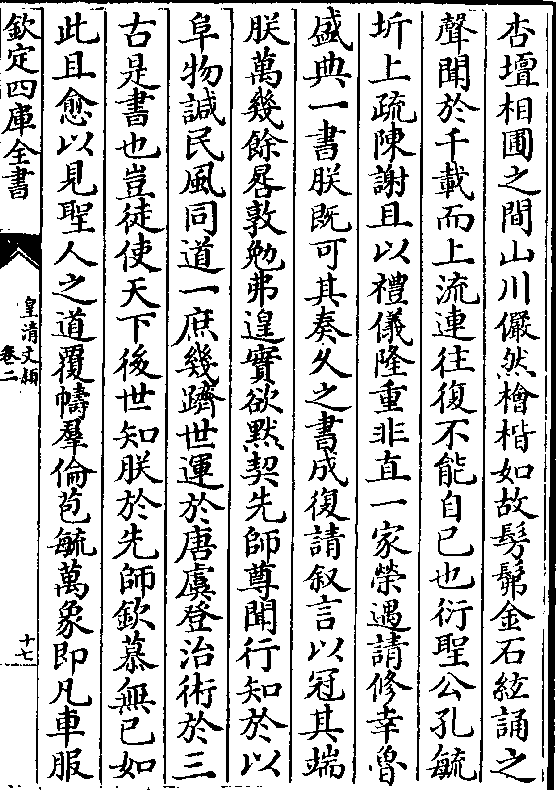 杏壇相圃之間山川儼然檜楷如故髣髴金石絃誦之
聲聞於千載而上流連往復不能自已也衍聖公孔毓
圻上疏陳謝且以禮儀隆重非直一家榮遇請修幸魯
盛典一書朕既可其奏久之書成復請叙言以冠其端
朕萬幾餘晷敦勉弗遑實欲默契先師尊聞行知於以
阜物諴民風同道一庶幾躋世運於唐虞登治術於三
古是書也豈徒使天下後世知朕於先師欽慕無已如
此且愈以見聖人之道覆幬羣倫苞毓萬象即凡車服
欽定四庫全書
皇清文頴
卷二
十七